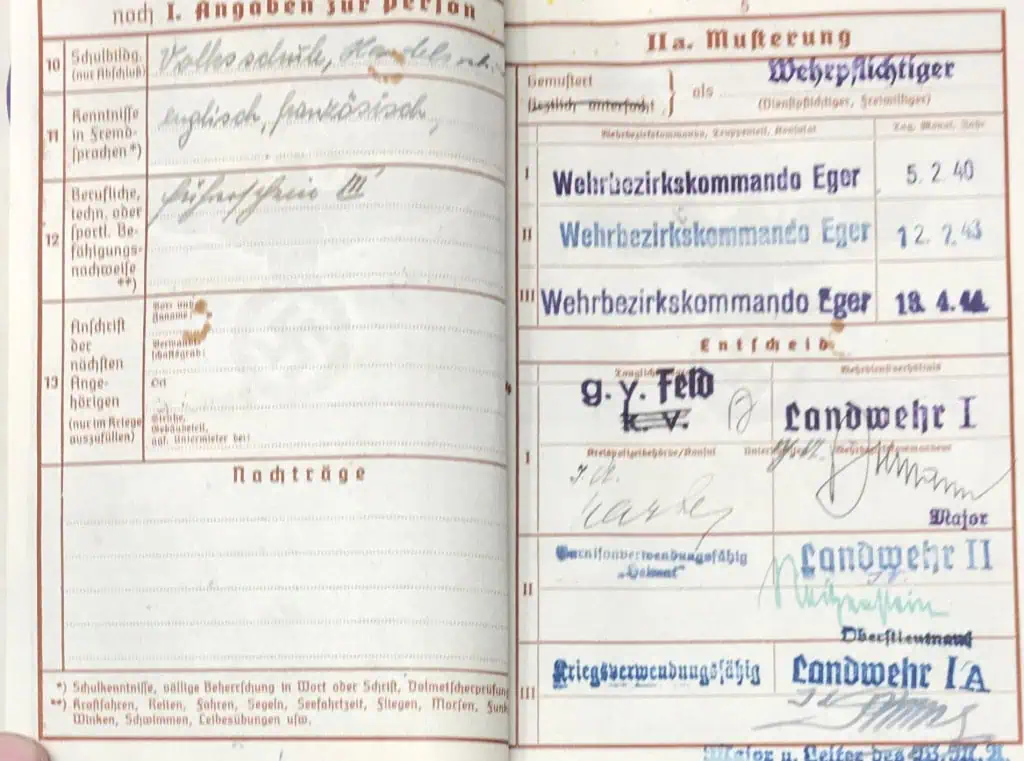 noch I. Angaben zur Person
10 Schulbildg. (nur Abschluß)
Volksschule, Handelssch.
11 Kenntnisse in Fremd-
sprachen*)
englisch, französisch,
12 Berufliche,
techn. oder
sportl. Be-
fähigungs-
nachweise
**)
Führerschein III
13 Anschrift
der
nächsten
Ange-
hörigen
(nur im Kriege
auszufüllen)
Vor- und
Zuname:
Verwandt-
schaftsgrad:
Ort
Straße,
Gebäudeteil,
ggf. Untermieter bei:
Nachträge
*) Schulkenntnisse, völlige Beherrschung in Wort oder Schrift, Dolmetscherprüfung
**) Kraftfahren, Reiten, Fahren, Segeln, Seefahrtzeit, Fliegen, Morsen, Funk
Winken, Schwimmen, Leibesübungen usw.
5
IIa. Musterung
Gemustert
ärztlich untersucht
als Wehrpflichtiger
(Dienstpflichtiger, Freiwilliger)
Wehrbezirkskommando, Truppenteil, Konsulat
Tag, Monat, Jahr
I Wehrbezirkskommando Eger 5. 2. 40
II Wehrbezirkskommando Eger 12. 7. 43
III Wehrbezirkskommando Eger 13. 4. 44
Entscheid
Wehrdienstverhältnis
I
g. v. Feld
k. v.
Landwehr I
Kreispolizeibehörde/Konsul
Major
II
Garnisonverwendungsfähig
„Heimat“
Landwehr II
Oberstleutnant
III
Kriegsverwendungsfähig
Landwehr I A
Major u. Leiter des W.M.A.